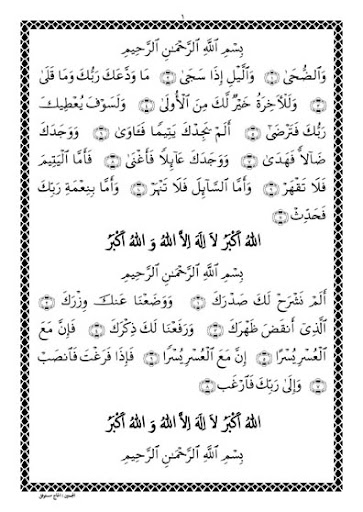 ١
بِسْمِ ٱللَّهِ ٱلرَّحْمَـٰنِ ٱلرَّحِيمِ
وَٱلضُّحَىٰ ۝١ وَٱلَّيْلِ إِذَا سَجَىٰ ۝٢ مَا وَدَّعَكَ رَبُّكَ وَمَا قَلَىٰ
۝٣ وَلَلْآخِرَةُ خَيْرٌ لَّكَ مِنَ ٱلْأُولَىٰ ۝٤ وَلَسَوْفَ يُعْطِيكَ
رَبُّكَ فَتَرْضَىٰٓ ۝٥ أَلَمْ يَجِدْكَ يَتِيمًا فَـَٔاوَىٰ ۝٦ وَوَجَدَكَ
ضَآلًّا فَهَدَىٰ ۝٧ وَوَجَدَكَ عَآئِلًا فَأَغْنَىٰ ۝٨ فَأَمَّا ٱلْيَتِيمَ
فَلَا تَقْهَرْ ۝٩ وَأَمَّا ٱلسَّآئِلَ فَلَا تَنْهَرْ ۝١٠ وَأَمَّا بِنِعْمَةِ رَبِّكَ
فَحَدِّثْ ۝١١
اَللهُ اَكْبَرُ لَا اِلٰهَ اِلَّا اللهُ وَ اللهُ اَكْبَرُ
بِسْمِ ٱللَّهِ ٱلرَّحْمَـٰنِ ٱلرَّحِيمِ
أَلَمْ نَشْرَحْ لَكَ صَدْرَكَ ۝١ وَوَضَعْنَا عَنكَ وِزْرَكَ ۝٢
ٱلَّذِىٓ أَنقَضَ ظَهْرَكَ ۝٣ وَرَفَعْنَا لَكَ ذِكْرَكَ ۝٤ فَإِنَّ مَعَ
ٱلْعُسْرِ يُسْرًا ۝٥ إِنَّ مَعَ ٱلْعُسْرِ يُسْرًا ۝٦ فَإِذَا فَرَغْتَ فَٱنصَبْ
۝٧ وَإِلَىٰ رَبِّكَ فَٱرْغَب ۝٨
اَللهُ اَكْبَرُ لَا اِلٰهَ اِلَّا اللهُ وَ اللهُ اَكْبَرُ
بِسْمِ ٱللَّهِ ٱلرَّحْمَـٰنِ ٱلرَّحِيمِ